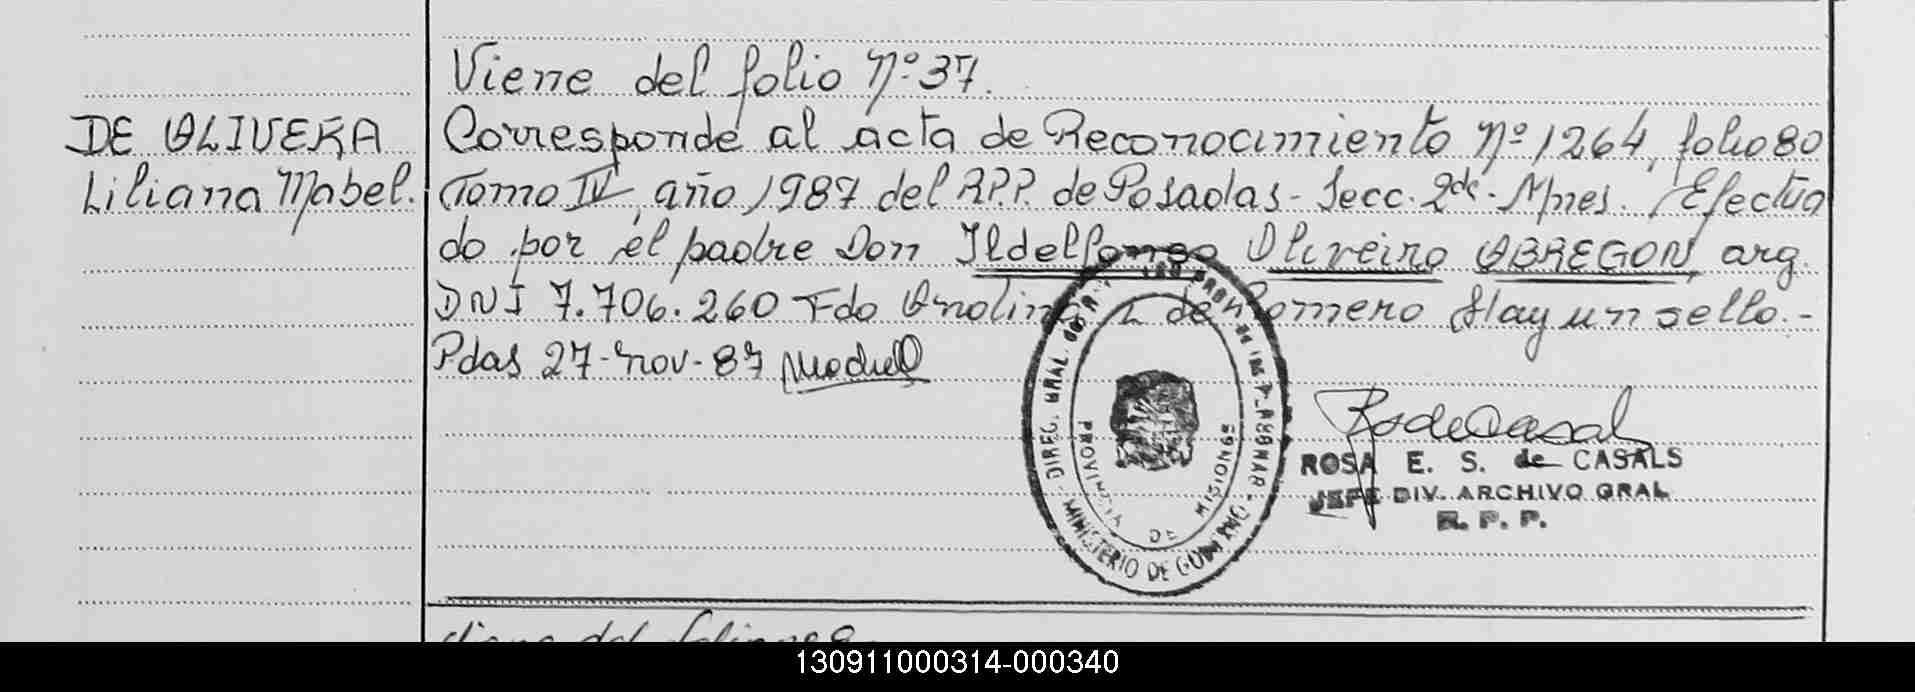 Viene del folio Nº 37.
DE OLIVERA
Liliana Mabel.
Corresponde al acta de Reconocimiento Nº 1264, folio 80
Tomo IV, año 1987 del R.P.P. de Posadas - Secc. 2da - Mnes. Efectua
do por el padre Don Ildelfonso Oliveiro OBREGON, arg.
DNI 7.706.260 Fdo de Romero Hay un sello.-
Pdas 27-nov-87
ROSA E. S. de CASALS
JEFE DIV. ARCHIVO GRAL
R. P. P.
PROVINCIA DE MISIONES
MINISTERIO DE
130911000314-000340